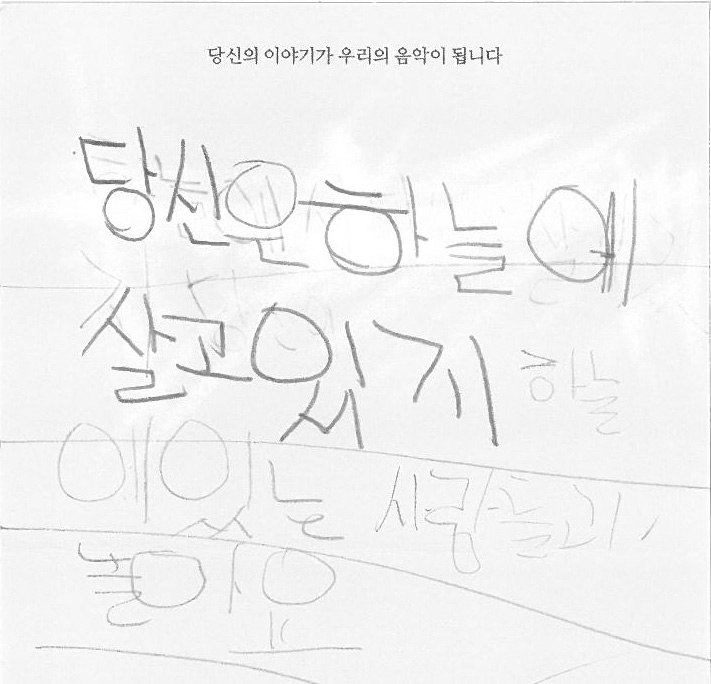 당신의 이야기가 우리의 음악이 됩니다
당신은하늘에
살고있지 하늘
에있는 사람들과
놀아요